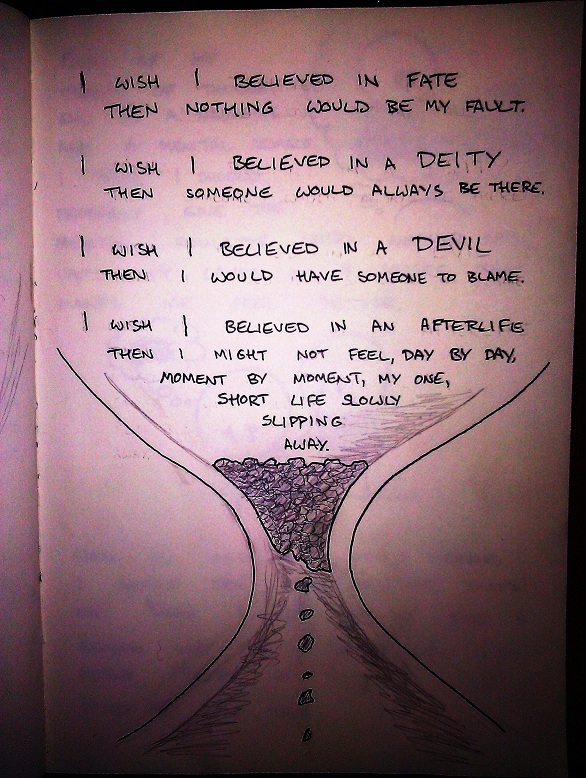 I WISH I BELIEVED IN FATE
THEN NOTHING WOULD BE MY FAULT.
I WISH I BELIEVED IN A DEITY
THEN SOMEONE WOULD ALWAYS BE THERE.
I WISH I BELIEVED IN A DEVIL
THEN I WOULD HAVE SOMEONE TO BLAME.
I WISH I BELIEVED IN AN AFTERLIFE
THEN I MIGHT NOT FEEL, DAY BY DAY,
MOMENT BY MOMENT, MY ONE,
SHORT LIFE SLOWLY
SLIPPING
AWAY.